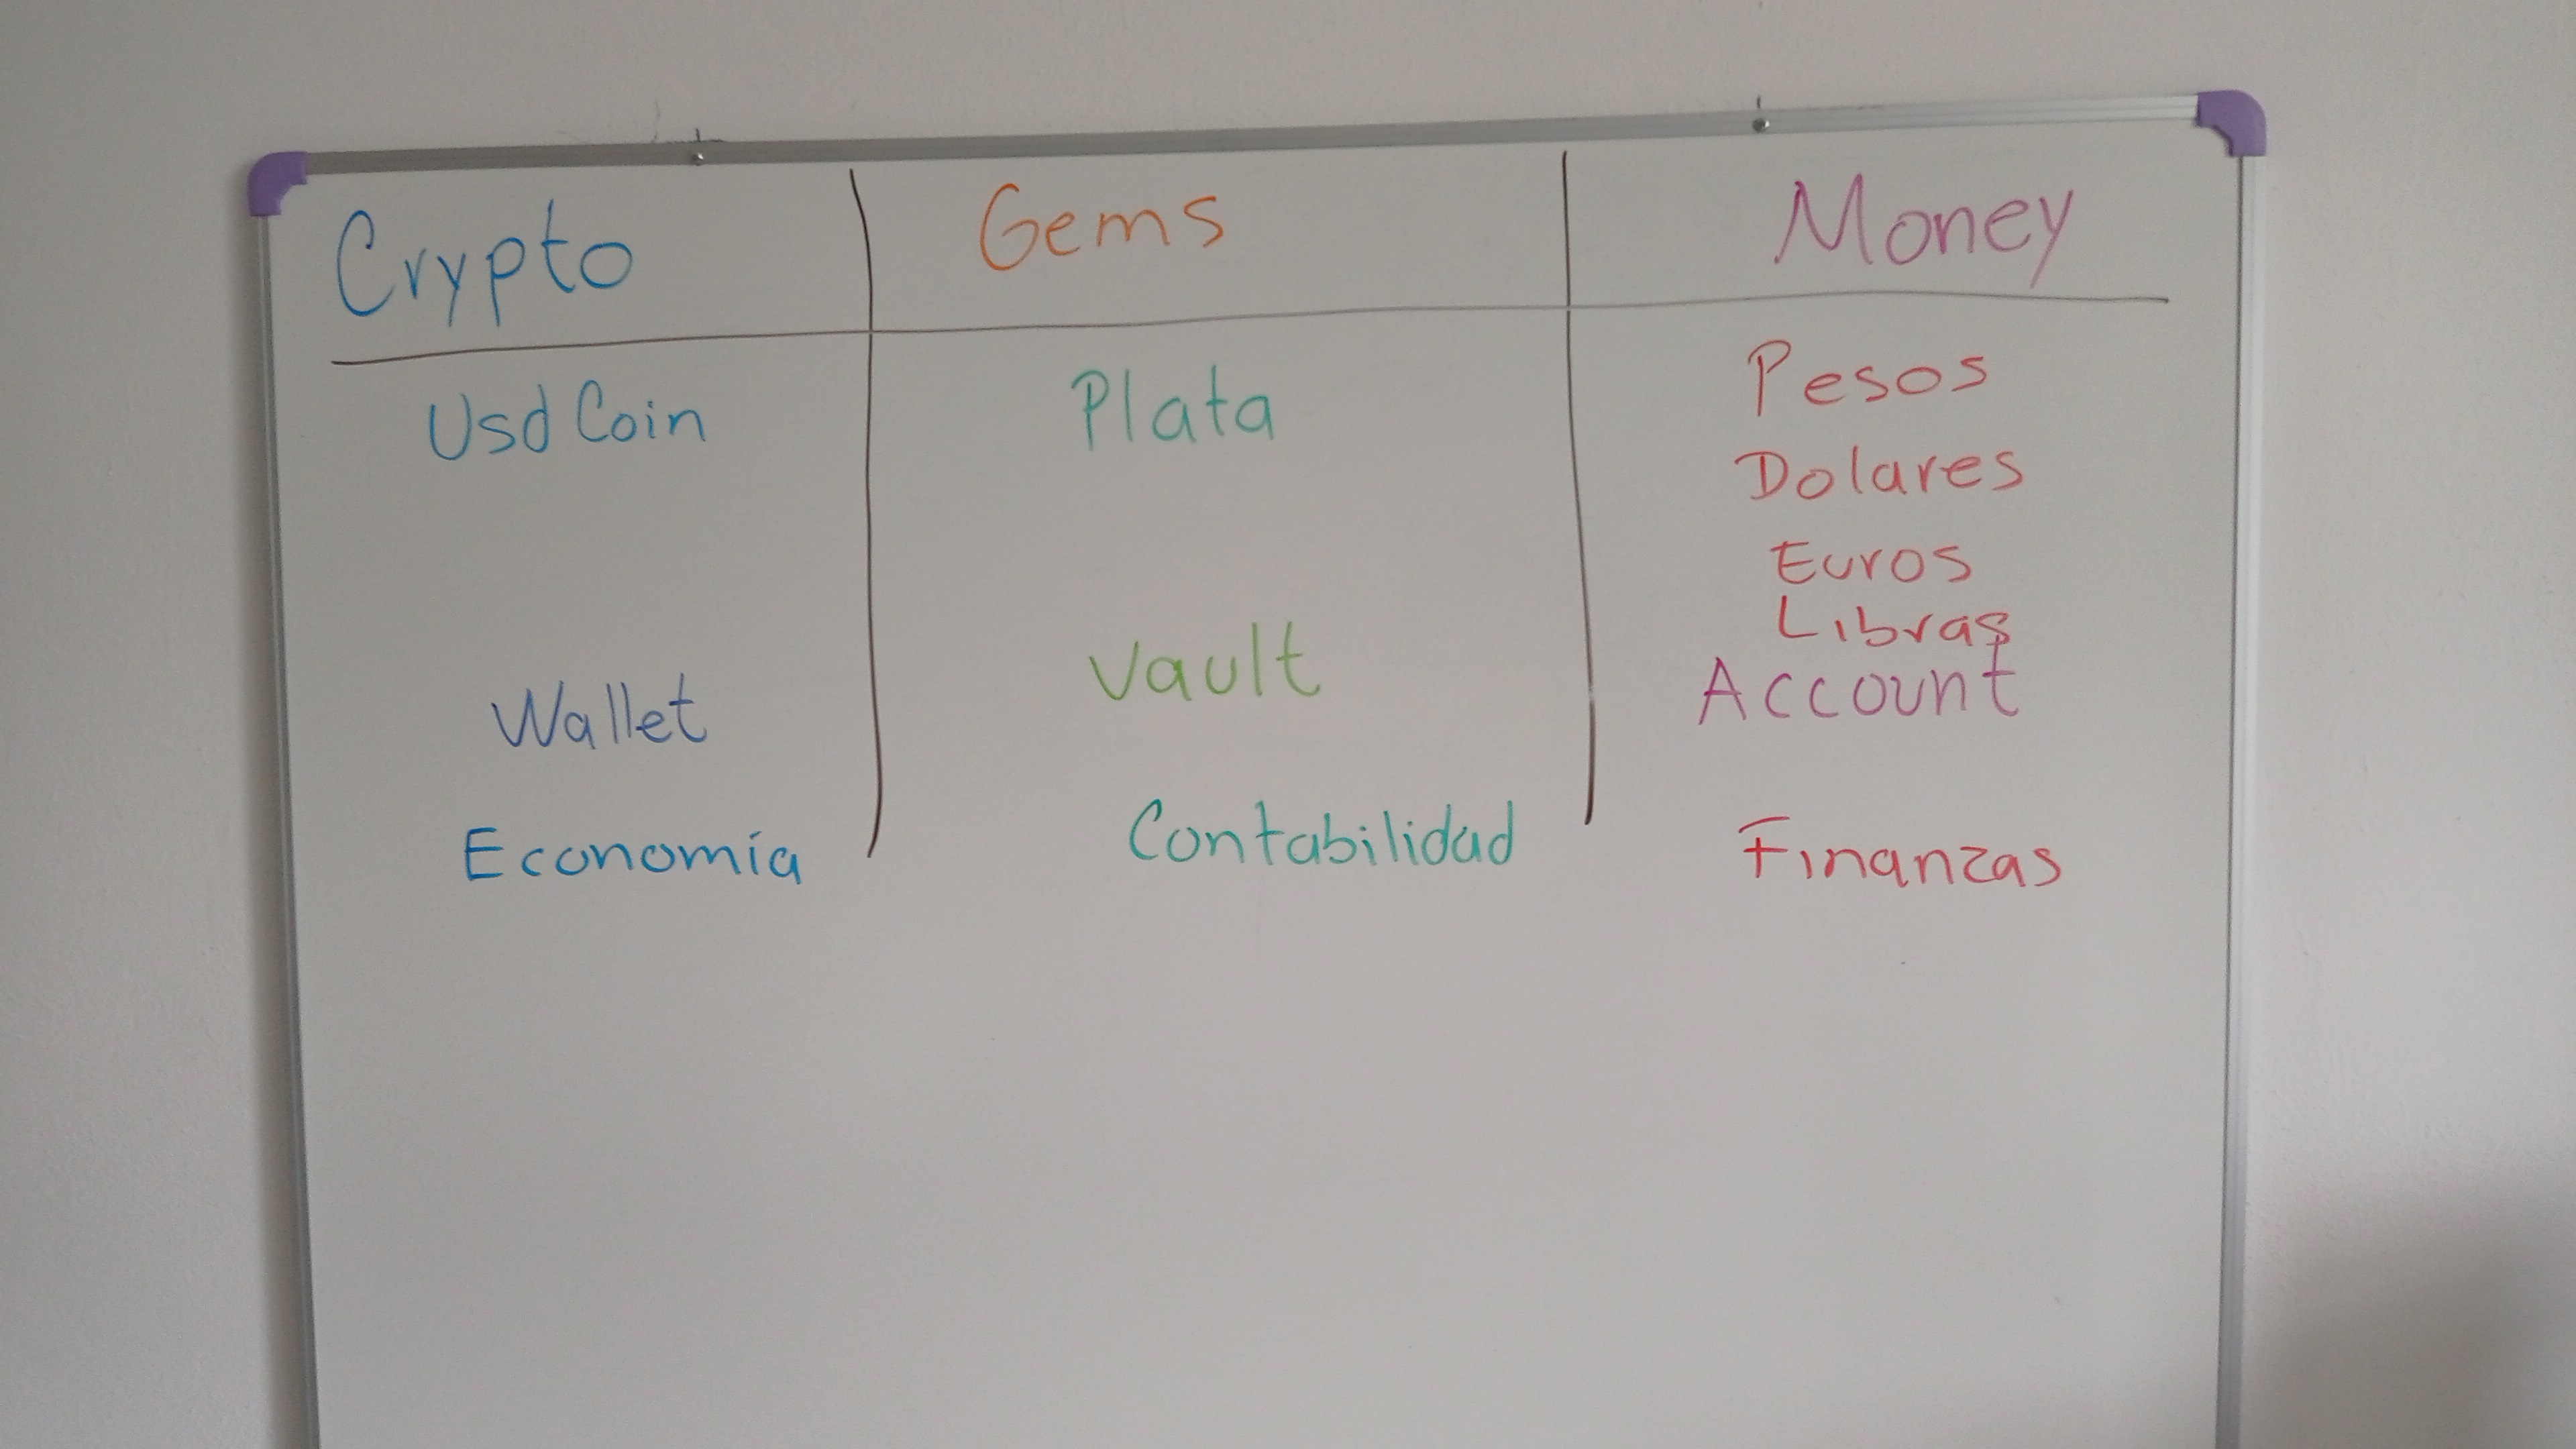 Crypto Gems Money
Usd Coin Plata Pesos
Dolares
Euros
Libras
Wallet Vault Account
Economía Contabilidad Finanzas